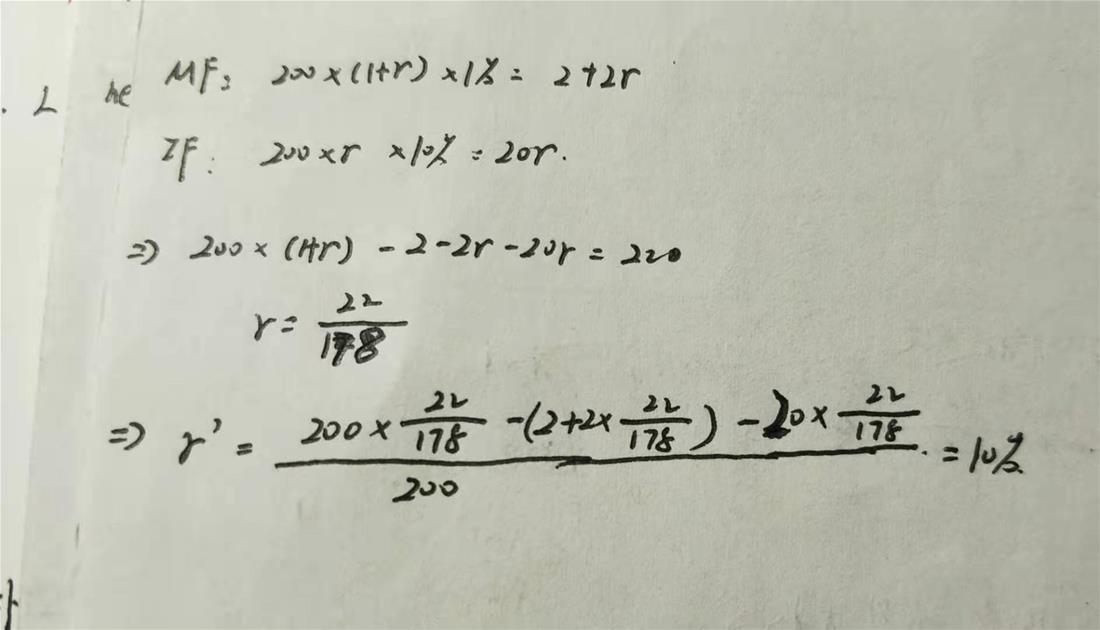 . L he MF: 200×(1+r)×1% = 2+2r
IF: 200×r ×10% = 20r.
=> 200×(1+r) -2-2r-20r = 220
r = 22/178
=> r' = (200×22/178 -(2+2×22/178) -20×22/178)/200 = 10%